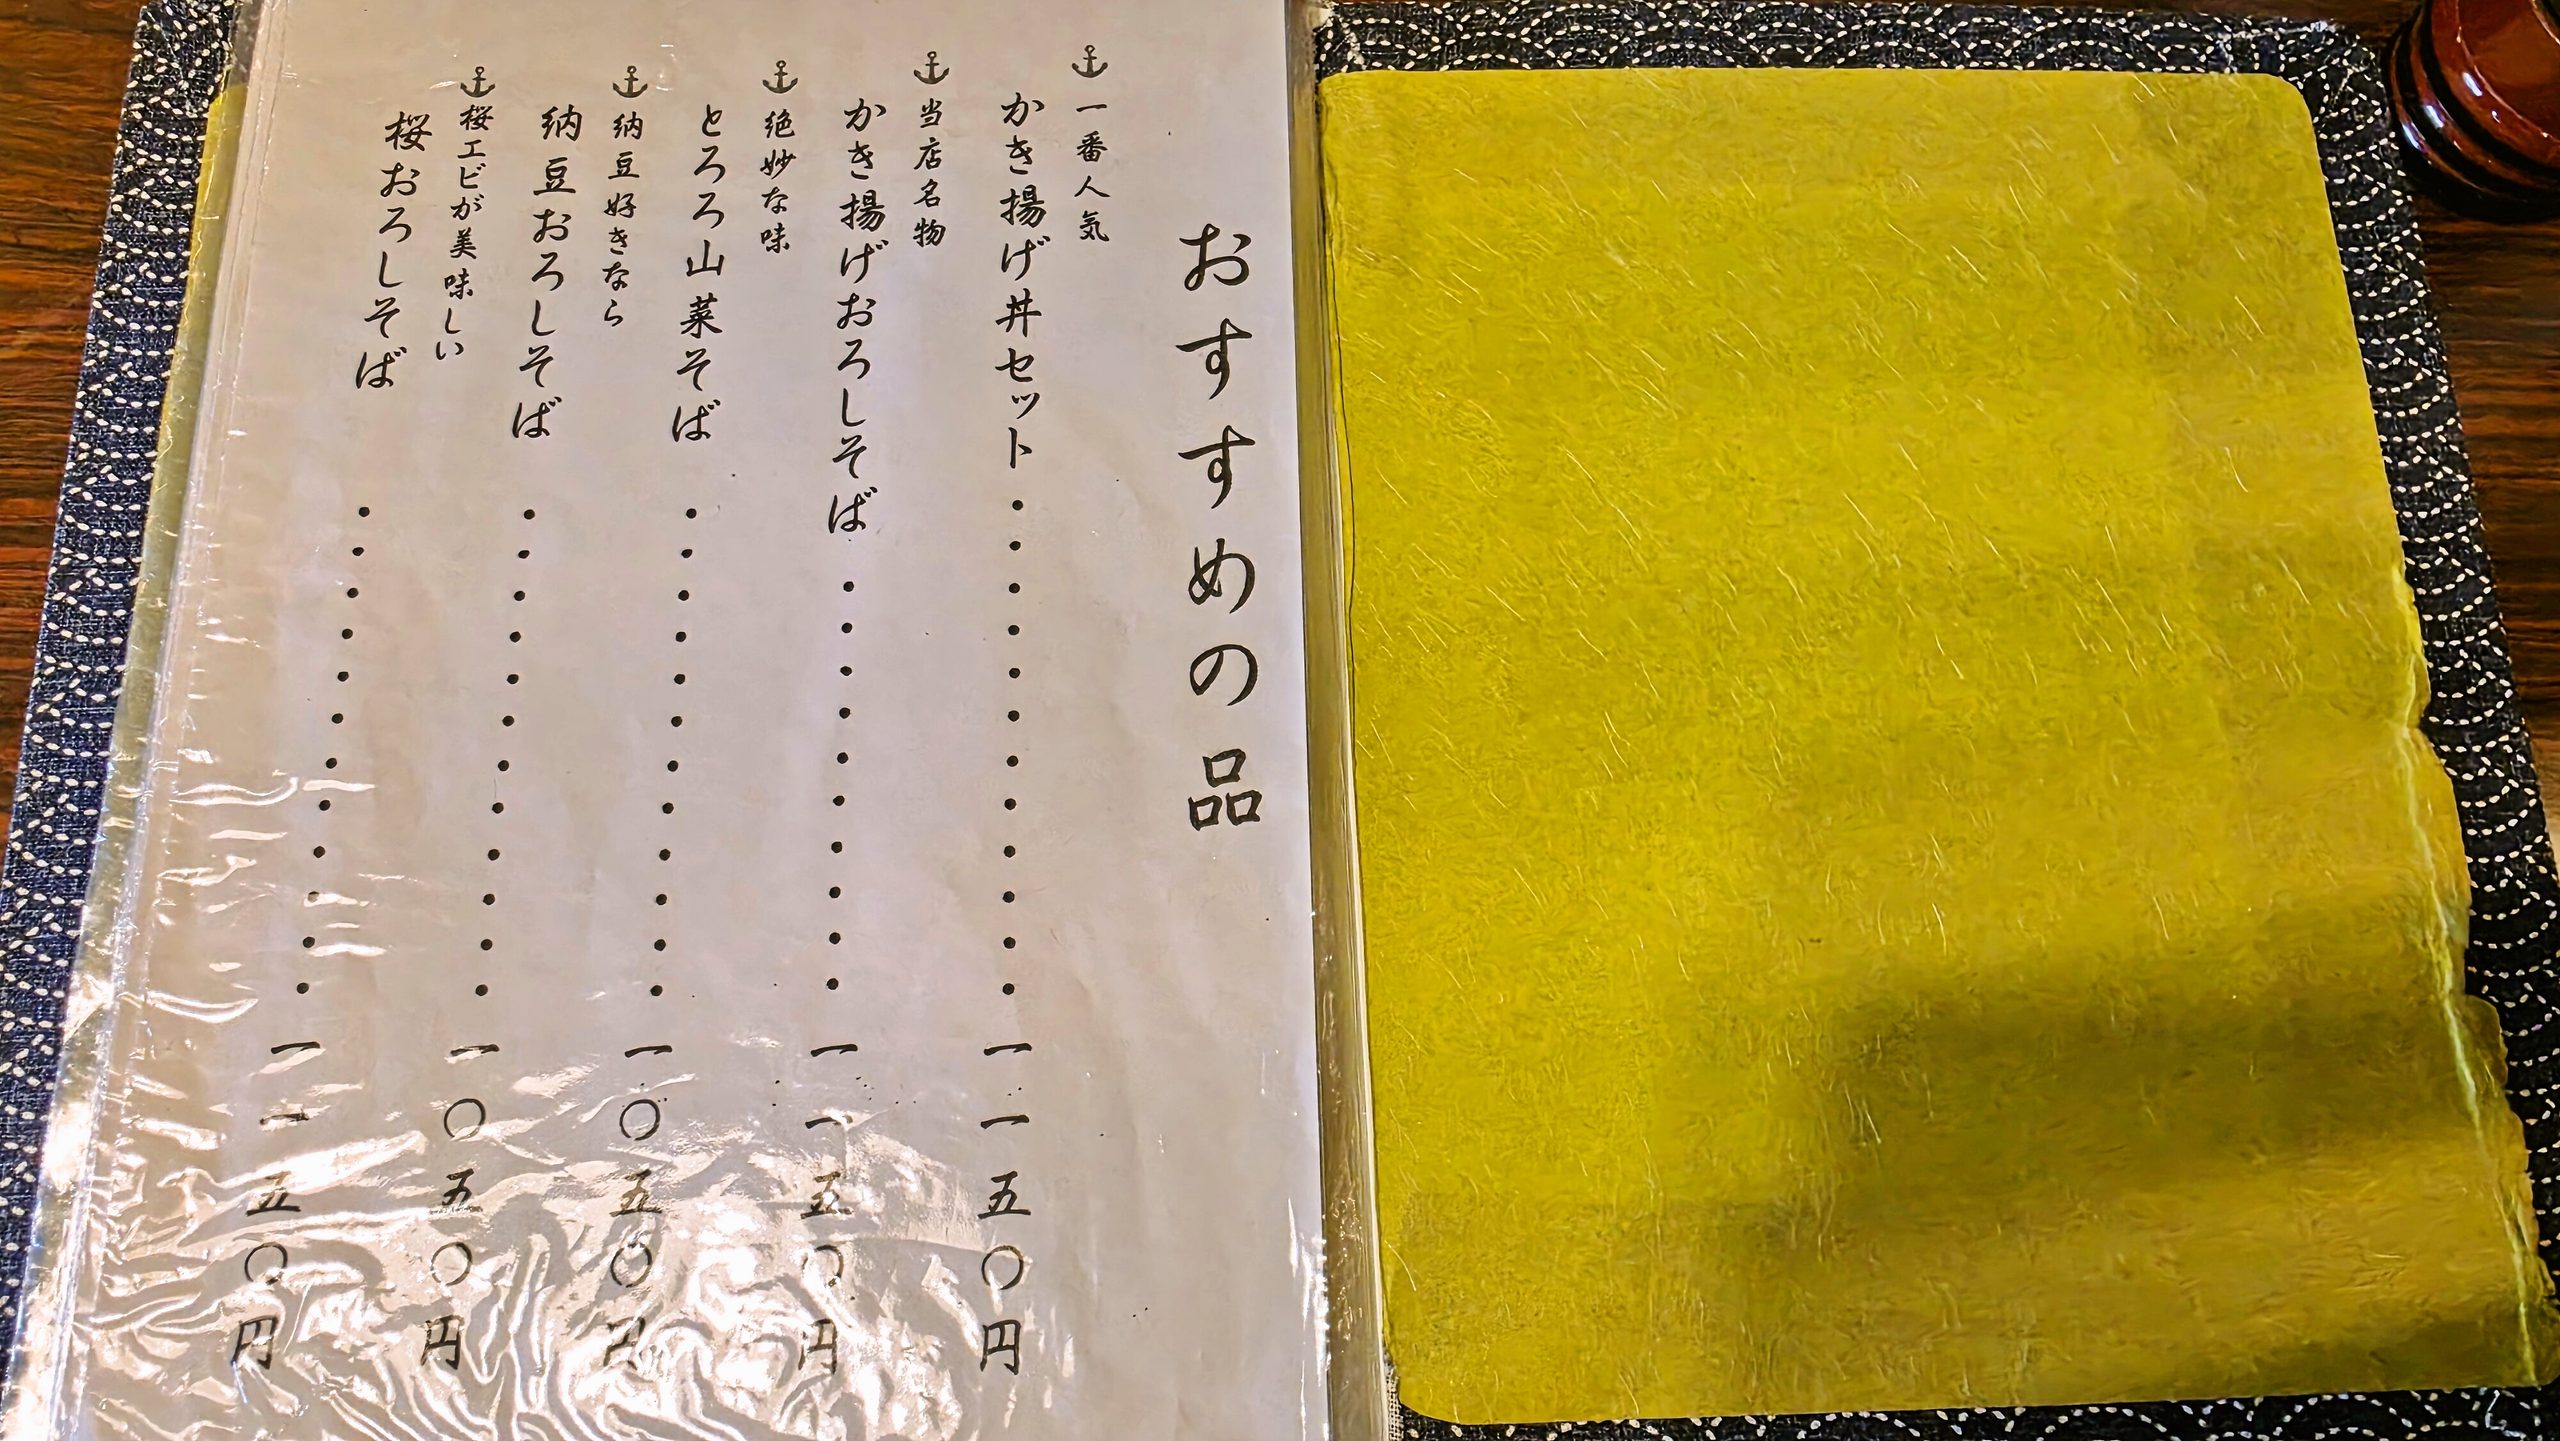 おすすめの品
一番人気
かき揚げ丼セット・・・・・・・・・・・・一一五〇円
当店名物
かき揚げおろしそば・・・・・・・・・・一一五〇円
絶妙な味
とろろ山菜そば・・・・・・・・・・・・一〇五〇円
納豆好きなら
納豆おろしそば・・・・・・・・・・・・一〇五〇円
桜エビが美味しい
桜おろしそば・・・・・・・・・・・・一一五〇円